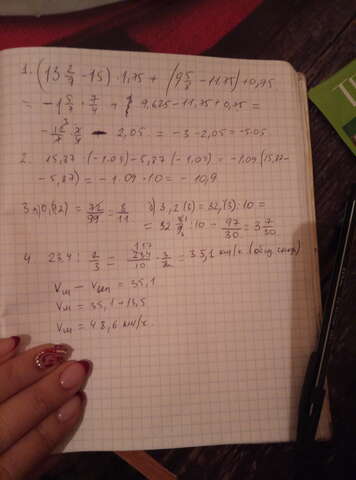 1. (13 2/7 - 15) · 1,75 + (9 5/8 - 11,75) + 0,75
= -1 5/7 · 7/4 + 9,625 - 11,75 + 0,75 =
- 12/7 · 7/4 - 2,05 = -3 - 2,05 = -5,05
2. 15,87 · (-1.09) - 5,87 · (-1.09) = -1.09 (15,87 -
- 5,87) = -1.09 · 10 = -10,9
3 а) 0,(72) = 72/99 = 8/11 б) 3,2(3) = 32,(3) : 10 =
= 32 : 10 = 97/30 = 3 7/30
4 23.4 : 2/3 = 234/10 · 3/2 = 35,1 км/ч
Vм - = 35,1
Vм = 35,1 + 13,5
Vм = 48,6 км/ч